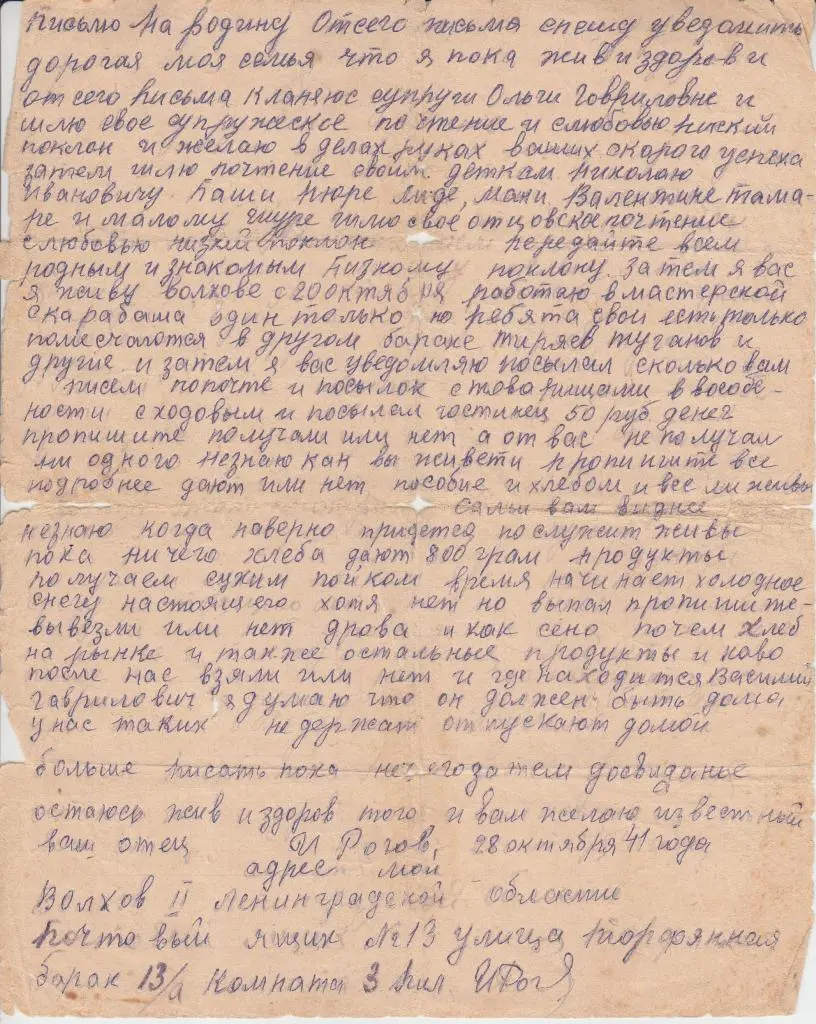 Письмо на родину Отсего письма спешу уведомить
дорогая моя семья что я пока жив и здоров и
отсего письма кланяюс супруги Ольги Говриловне и
шлю свое супружеское почтение и слюбовью ниский
поклон и желаю в делах руках ваших скарого успеха
затем шлю почтение своим деткам Николаю
Ивановичу Паши Нюре Лиде, мани Валентине тама-
ре и малому шуре шлю свое отцовска почтение
слюбовью низкий поклон передайте всем
родным и знакомым низкому поклону. Затем я вас
я живу волхове с 20 октября работаю в мастерской
скарабаша один только но ребята свои есть только
помесчаются в другом бараке тиряев туганов и
другие и затем я вас уведомляю посылал сколько вам
писем попочте и посылок стоварищами в вособе-
ности сходовым и посылал гостинец 50 руб денег
пропишите получали или нет а от вас не получал
ни одного незнаю как вы живети пропишите все
подробнее дают или нет пособие и хлебом и все ли живы
вам виднее
незнаю когда наверно придется послужит живы
пока ничего хлеба дают 800 грам продукты
получаем сухим пойком время начинает холодное
снегу настоящего хотя нет но выпал пропишите
вывезли или нет дрова и как сено почем хлеб
на рынке и также остальные продукты и каво
после нас взяли или нет и где находится Василий
Гаврилович я думаю что он должен быть дома,
у нас таких не держат отпускают домой
больше писать пока нечего затем досвиданье
остаюсь жив и здоров того и вам желаю известный
ваш отец И Рогов, 28 октября 41 года
адрес мой
Волхов II Ленинградской области
Почтовый ящик №13 улица торфянная
барак 13/а комната 3 пил ИРог